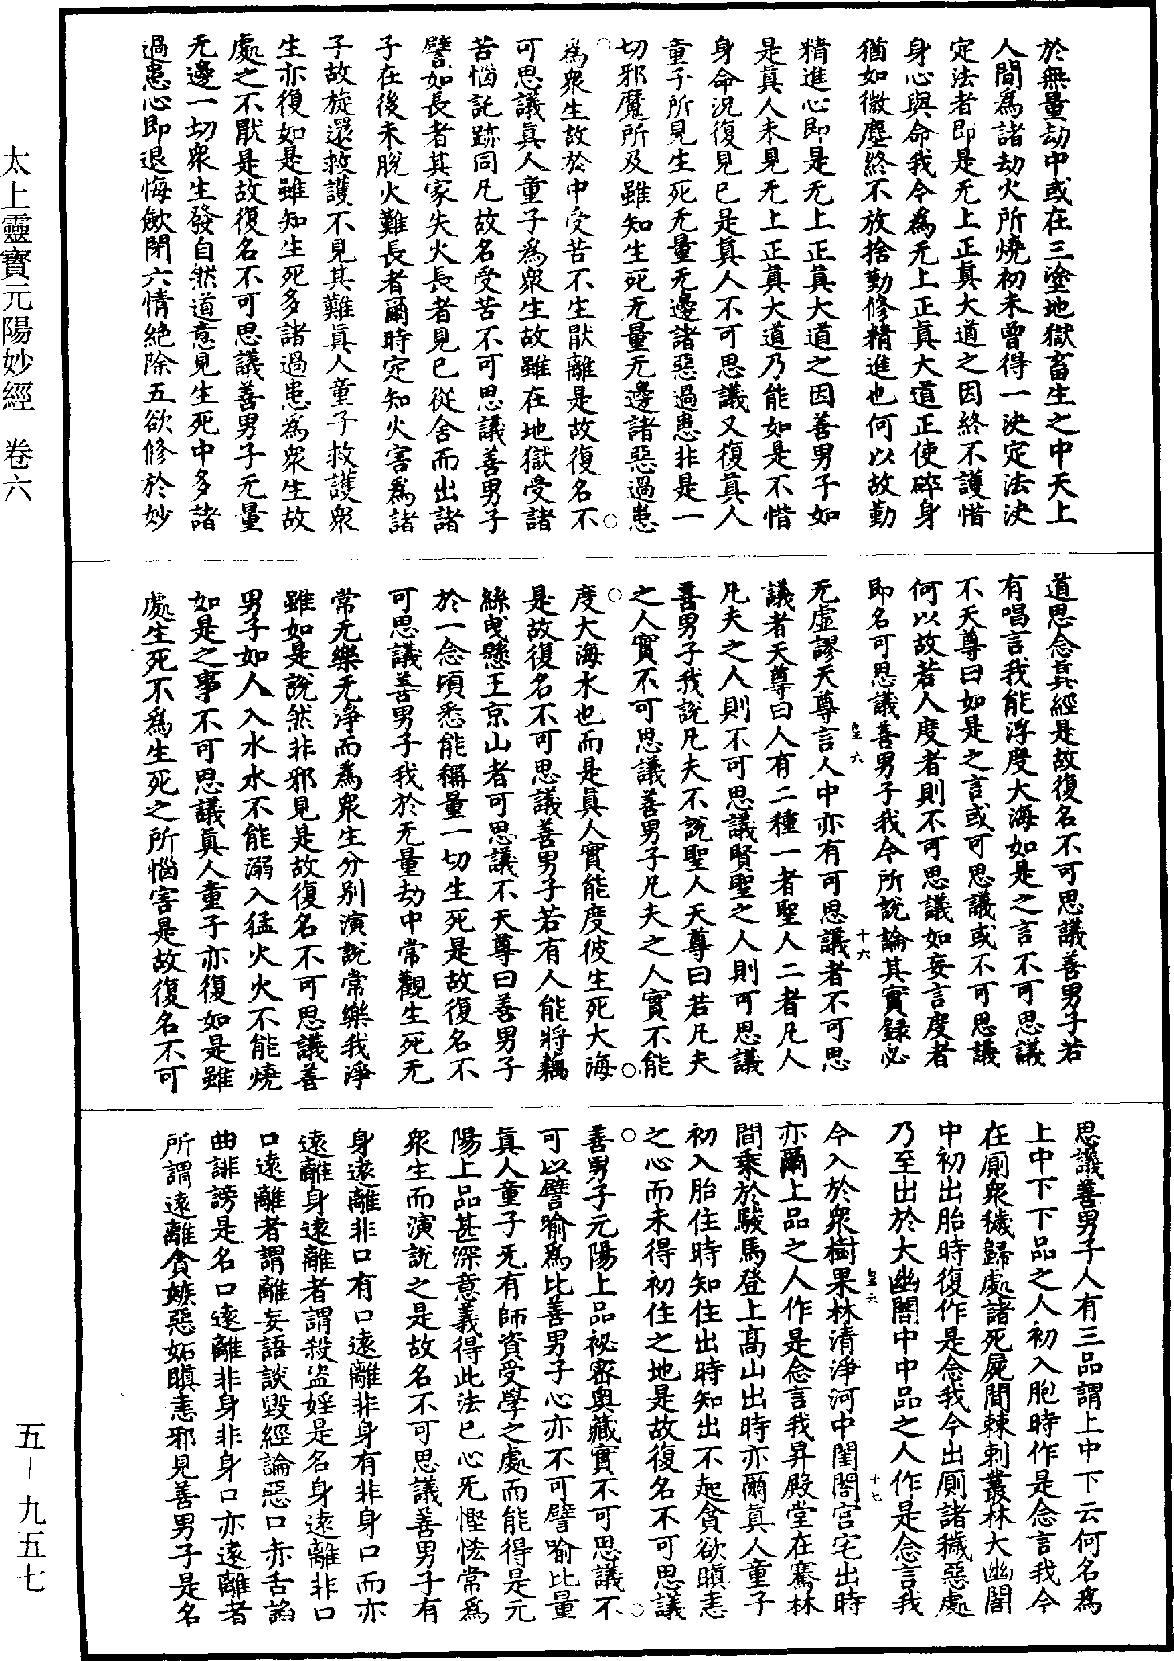 於無量劫中或在三塗地獄畜生之中天上
人間爲諸劫火所燒初未曾得一決定法決
定法者即是无上正真大道之因終不護惜
身心與命我今爲无上正真大道正使碎身
猶如微塵終不放捨勤修精進也何以故勤
精進心即是无上正真大道之因善男子如
是真人未見无上正真大道乃能如是不惜
身命況復見已是真人不可思議又復真人
童子所見生死无量无邊諸惡過患非是一
切邪魔所及雖知生死无量无邊諸惡過患
爲衆生故於中受苦不生猒離是故復名不
可思議真人童子爲衆生故雖在地獄受諸
苦惱託跡同凡故名受苦不可思議善男子
譬如長者其家失火長者見已從舍而出諸
子在後未脫火難長者爾時定知火害爲諸
子故旋還救護不見其難真人童子救護衆
生亦復如是雖知生死多諸過患爲衆生故
處之不猒是故復名不可思議善男子无量
无邊一切衆生發自然道意見生死中多諸
過患心即退悔斂閉六情絶除五欲修於妙
道思念真經是故復名不可思議善男子若
有唱言我能浮度大海如是之言不可思議
不天尊曰如是之言或可思議或不可思議
何以故若人度者則不可思議如妄言度者
即名可思議善男子我今所說論其實録必
无虛謬天尊言人中亦有可思議者不可思
議者天尊曰人有二種一者聖人二者凡人
凡夫之人則不可思議賢聖之人則可思議
善男子我說凡夫不說聖人天尊曰若凡夫
之人實不可思議善男子凡夫之人實不能
度大海水也而是真人實能度彼生死大海
是故復名不可思議善男子若有人能將藕
絲曵懸王京山者可思議不天尊曰善男子
於一念頃悉能稱量一切生死是故復名不
可思議善男子我於无量劫中常觀生死无
常无樂无淨而爲衆生分別演說常樂我淨
雖如是說然非邪見是故復名不可思議善
男子如人入水水不能溺入猛火火不能燒
如是之事不可思議真人童子亦復如是雖
處生死不爲生死之所惱害是故復名不可
思議善男子人有三品謂上中下云何名爲
上中下下品之人初入胞時作是念言我今
在厠衆穢歸處諸死屍間棘刺叢林大幽闇
中初出胎時復作是念我今出厠諸穢惡處
乃至出於大幽闇中中品之人作是念言我
今入於衆樹果林清淨河中閨閤宮宅出時
亦爾上品之人作是念言我昇殿堂在騫林
間乘於駿馬登上高山出時亦爾真人童子
初入胎住時知住出時知出不起貪欲瞋恚
之心而未得初住之地是故復名不可思議
善男子元陽上品祕密奥藏實不可思議不
可以譬喻爲比善男子心亦不可譬喻比量
真人童子无有師資受學之處而能得是元
陽上品甚深意義得此法已心无慳悋常爲
衆生而演說之是故名不可思議善男子有
身遠離非口有口遠離非身有非身口而亦
遠離身遠離者謂殺盜婬是名身遠離非口
口遠離者謂離妄語談毀經論惡口赤舌諂
曲誹謗是名口遠離非身非身口亦遠離者
所謂遠離貪嫉惡妬瞋恚邪見善男子是名
太上靈寶元陽妙經 卷六
五-九五七
十六
十七